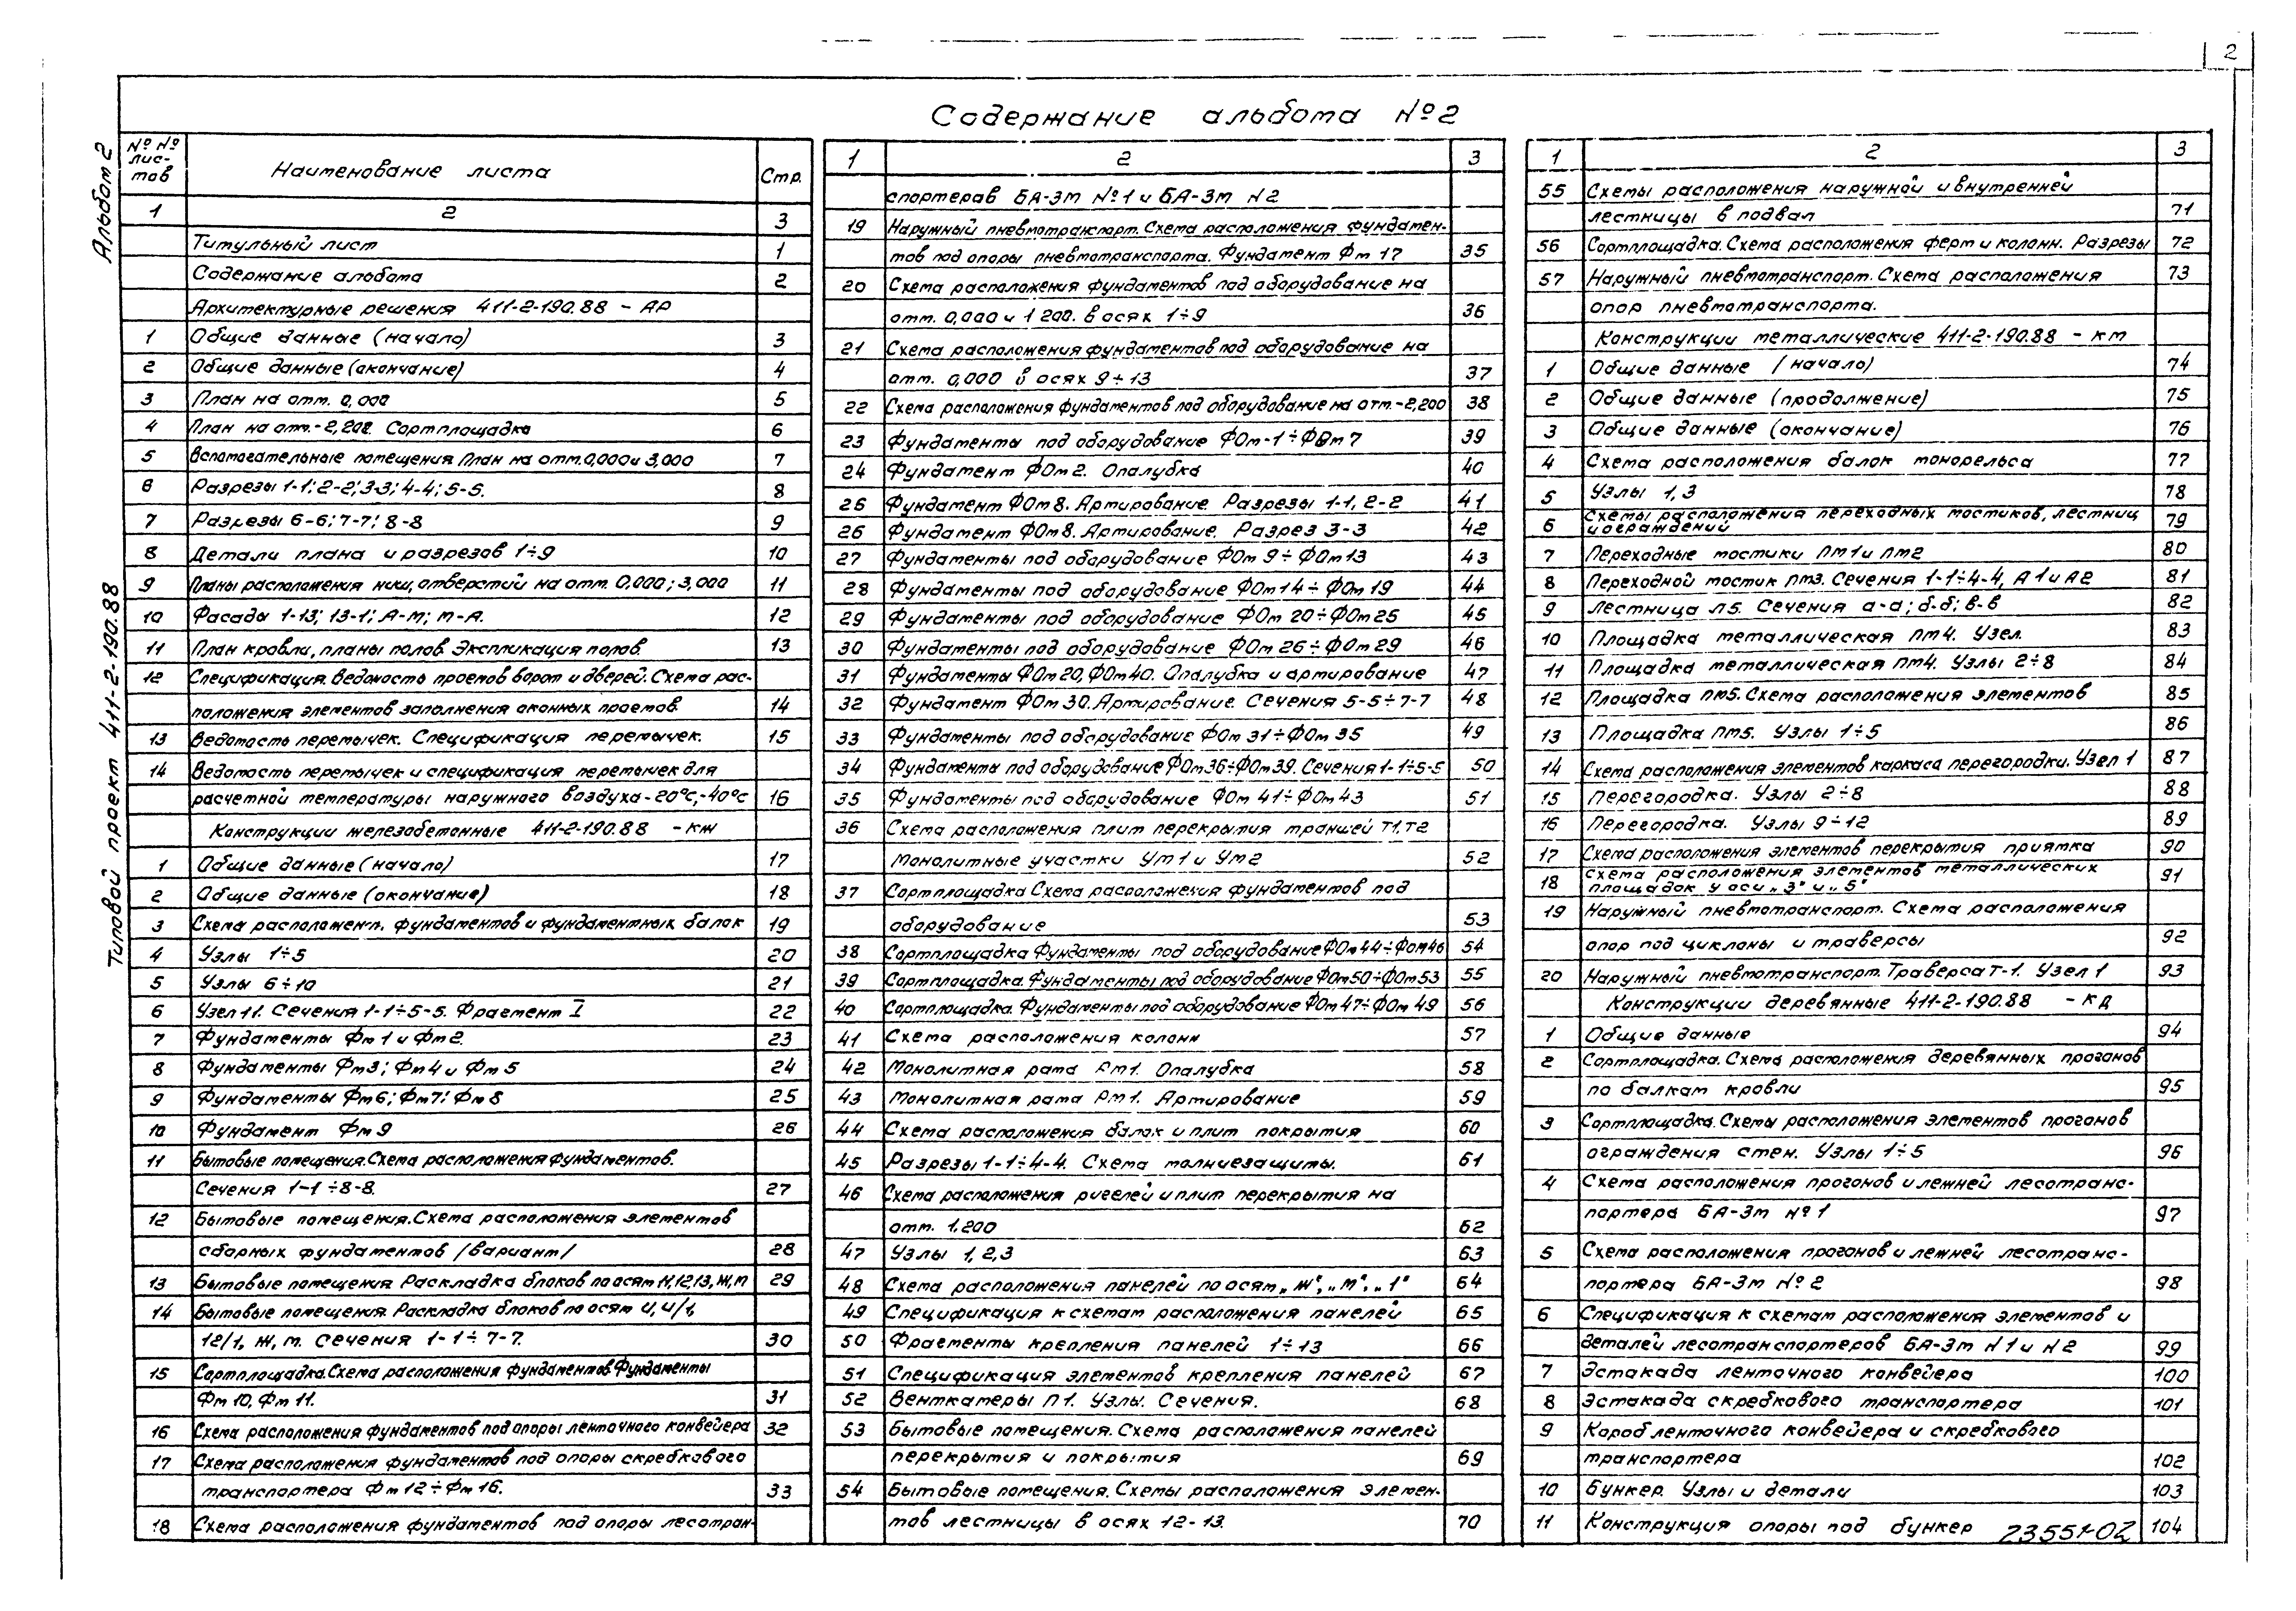 2
Содержание альбома №2
Альбом 2
Типовой проект 411-2-190.88
№ № лис-тов Наименование листа Стр.
1 2 3
Титульный лист 1
Содержание альбома 2
Архитектурные решения 411-2-190.88 - АР
1 Общие данные (начало) 3
2 Общие данные (окончание) 4
3 План на отм. 0,000 5
4 План на отм.-2,200. Сортплощадка 6
5 Вспомогательные помещения План на отм.0,000 и 3,000 7
6 Разрезы 1-1; 2-2; 3-3; 4-4; 5-5. 8
7 Разрезы 6-6; 7-7; 8-8 9
8 Детали плана и разрезов 1÷9 10
9 Планы расположения ниш, отверстий на отм. 0,000; 3,000 11
10 Фасады 1-13; 13-1; А-М; М-А. 12
11 План кровли, планы полов. Экспликация полов. 13
12 Спецификация. Ведомость проемов ворот и дверей. Схема рас-
положения элементов заполнения оконных проемов. 14
13 Ведомость перемычек. Спецификация перемычек. 15
14 Ведомость перемычек и спецификация перемычек для
расчетной температуры наружного воздуха -20°С, -40°С 16
Конструкции железобетонные 411-2-190.88 - КЖ
1 Общие данные (начало) 17
2 Общие данные (окончание) 18
3 Схема расположен. фундаментов и фундаментных балок 19
4 Узлы 1÷5 20
5 Узлы 6÷10 21
6 Узел 11. Сечения 1-1÷5-5. Фрагмент I 22
7 Фундаменты Фм1 и Фм2. 23
8 Фундаменты Фм3; Фм4 и Фм5 24
9 Фундаменты Фм6; Фм7; Фм8 25
10 Фундамент Фм9 26
11 Бытовые помещения. Схема расположения фундаментов.
Сечения 1-1÷8-8. 27
12 Бытовые помещения. Схема расположения элементов
сборных фундаментов /вариант/ 28
13 Бытовые помещения Раскладка блоков по осям 11,12,13, Ж, М 29
14 Бытовые помещения. Раскладка блоков по осям И, И/1,
12/1, Ж, М. Сечения 1-1÷7-7. 30
15 Сортплощадка. Схема расположения фундаментов. Фундаменты
Фм10, Фм11. 31
16 Схема расположения фундаментов под опоры ленточного конвейера 32
17 Схема расположения фундаментов под опоры скребкового
транспортера Фм12÷Фм16. 33
18 Схема расположения фундаментов под опоры лесотран-
1 2 3
спортерав БА-3м №1 и БА-3м N2
19 Наружный пневмотранспорт. Схема расположения фундамен-
тов под опоры пневмотранспорта. Фундамент Фм17 35
20 Схема расположения фундаментов под оборудование на
отм. 0,000 и 1 200. в осях 1÷9 36
21 Схема расположения фундаментов под оборудование на
отм. 0,000 в осях 9÷13 37
22 Схема расположения фундаментов под оборудование на отм.-2,200 38
23 Фундаменты под оборудование ФОм-1÷ФОм7 39
24 Фундамент ФОм2. Опалубка 40
25 Фундамент ФОм8. Армирование. Разрезы 1-1, 2-2 41
26 Фундамент ФОм8. Армирование. Разрез 3-3 42
27 Фундаменты под оборудование ФОм9÷ФОм13 43
28 Фундаменты под оборудование ФОм14÷ФОм19 44
29 Фундаменты под оборудование ФОм20÷ФОм25 45
30 Фундаменты под оборудование ФОм26÷ФОм29 46
31 Фундаменты ФОм20, ФОм40. Опалубка и армирование 47
32 Фундамент ФОм30. Армирование. Сечения 5-5÷7-7 48
33 Фундаменты под оборудование ФОм31÷ФОм35 49
34 Фундаменты под оборудование ФОм36÷ФОм39. Сечения 1-1÷5-5 50
35 Фундаменты под оборудование ФОм41÷ФОм43 51
36 Схема расположения плит перекрытия траншей Т1, Т2
Монолитные участки Ум1 и Ум2 52
37 Сортплощадка Схема расположения фундаментов под
оборудование 53
38 Сортплощадка Фундаменты под оборудование ФОм44÷ФОм46 54
39 Сортплощадка. Фундаменты под оборудование ФОм50÷ФОм53 55
40 Сортплощадка. Фундаменты под оборудование ФОм47÷ФОм49 56
41 Схема расположения колонн 57
42 Монолитная рама Рм1. Опалубка 58
43 Монолитная рама Рм1. Армирование 59
44 Схема расположения балок и плит покрытия 60
45 Разрезы 1-1÷4-4. Схема молниезащиты. 61
46 Схема расположения ригелей и плит перекрытия на
отм. 1.200 62
47 Узлы 1, 2, 3 63
48 Схема расположения панелей по осям „Ж", „М", „1" 64
49 Спецификация к схемам расположения панелей 65
50 Фрагменты крепления панелей 1÷13 66
51 Спецификация элементов крепления панелей 67
52 Венткамеры П1. Узлы. Сечения. 68
53 Бытовые помещения. Схема расположения панелей
перекрытия и покрытия 69
54 Бытовые помещения. Схемы расположения элемен-
тов лестницы в осях 12-13. 70
1 2 3
55 Схемы расположения наружной и внутренней
лестницы в подвал 71
56 Сортплощадка. Схема расположения ферм и колонн. Разрезы 72
57 Наружный пневмотранспорт. Схема расположения 73
опор пневмотранспорта.
Конструкции металлические 411-2-190.88 - КМ
1 Общие данные /начало) 74
2 Общие данные (продолжение) 75
3 Общие данные (окончание) 76
4 Схема расположения балок монорельса 77
5 Узлы 1, 3 78
6 Схемы расположения переходных мостиков, лестниц
и ограждений 79
7 Переходные мостики ПМ1 и ПМ2 80
8 Переходной мостик ПМ3. Сечения 1-1÷4-4, А1 и А2 81
9 Лестница Л5. Сечения а-а; б-б; в-в 82
10 Площадка металлическая ПМ4. Узел. 83
11 Площадка металлическая ПМ4. Узлы 2÷8 84
12 Площадка ПМ5. Схема расположения элементов 85
13 Площадка ПМ5. Узлы 1÷5 86
14 Схема расположения элементов каркаса перегородки. Узел 1 87
15 Перегородка. Узлы 2÷8 88
16 Перегородка. Узлы 9÷12 89
17 Схема расположения элементов перекрытия приямка 90
18 Схема расположения элементов металлических
площадок у оси „3" и „5" 91
19 Наружный пневмотранспорт. Схема расположения
опор под циклоны и траверсы 92
20 Наружный пневмотранспорт. Траверса Т-1. Узел 1 93
Конструкции деревянные 411-2-190.88 - КД
1 Общие данные 94
2 Сортплощадка. Схема расположения деревянных прогонов
по балкам кровли 95
3 Сортплощадка. Схемы расположения элементов прогонов
ограждения стен. Узлы 1÷5 96
4 Схема расположения прогонов и лежней лесотранс-
портера БА-3м №1 97
5 Схема расположения прогонов и лежней лесотранс-
портера БА-3м №2 98
6 Спецификация к схемам расположения элементов и
деталей лесотранспортеров БА-3м N1 и N2 99
7 Эстакада ленточного конвейера 100
8 Эстакада скребкового транспортера 101
9 Короб ленточного конвейера и скребкового
транспортера 102
10 Бункер. Узлы и детали 103
11 Конструкция опоры под бункер 104
23551-02